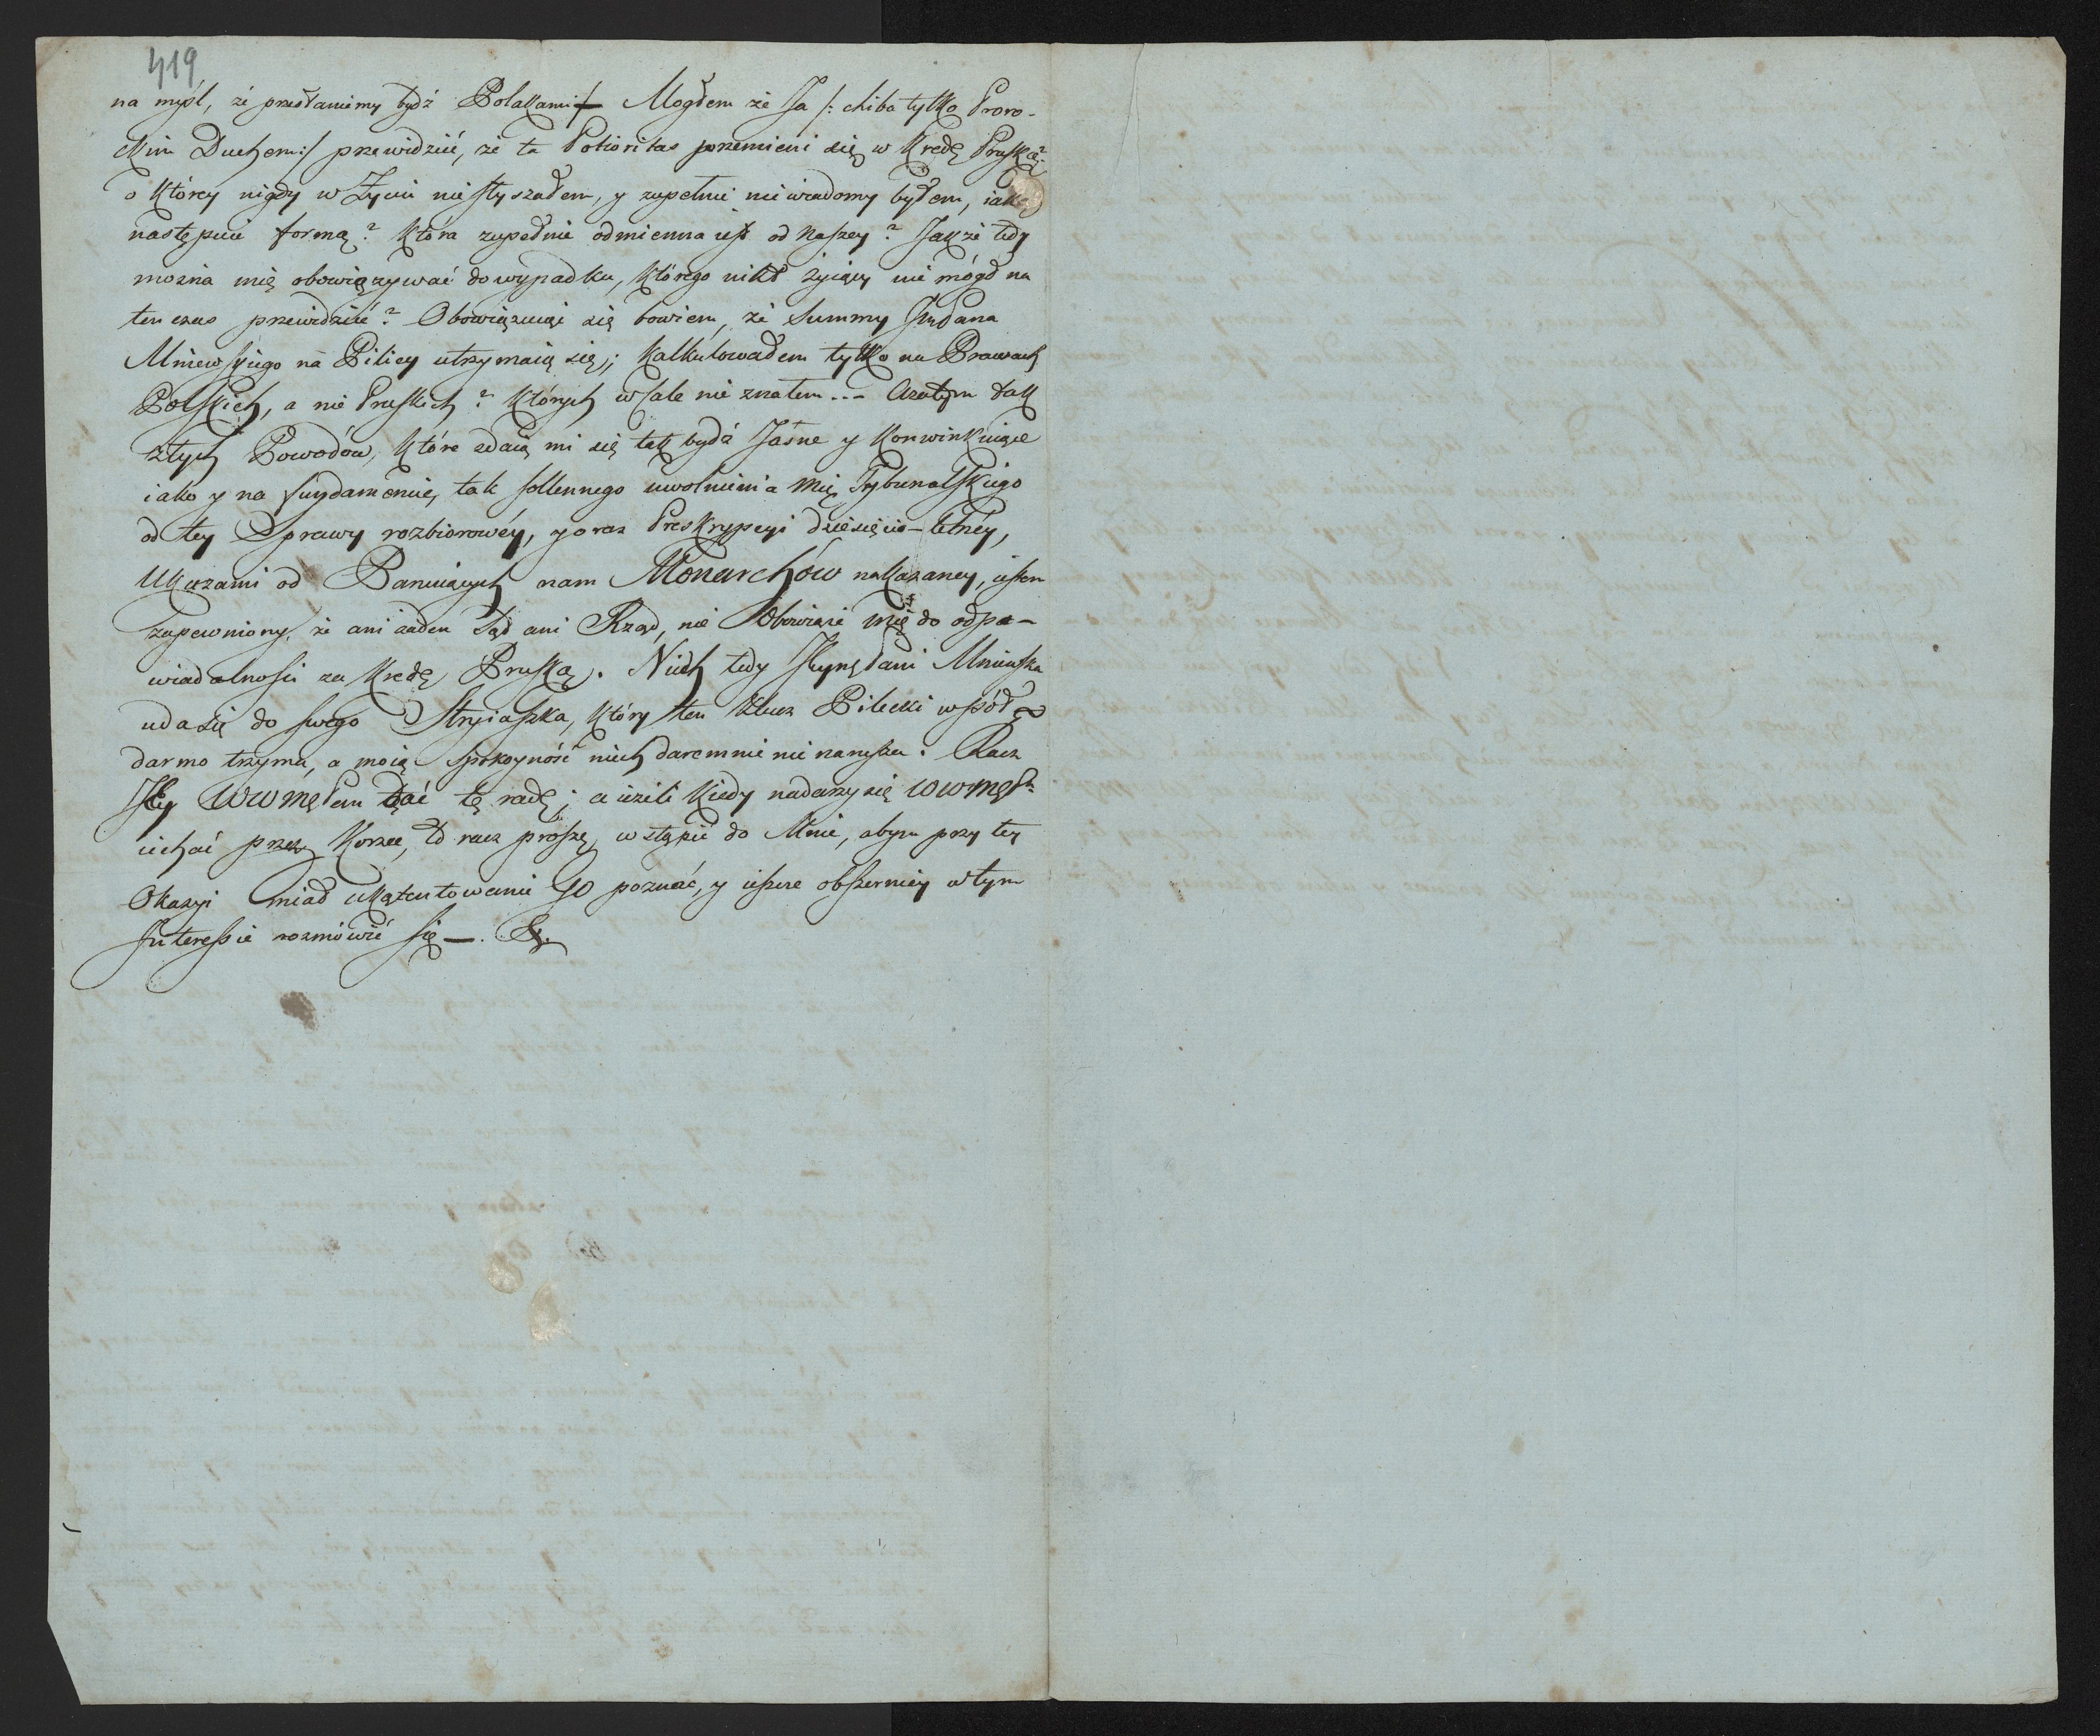 419
na myśl, że przestaniemy bydź Polakami :/ Mogłem że Ja /: chiba tylko Proro-
ckim Duchem :/ przewidzieć, że ta Potioritas przemieni się w Kredę Pruską?
o którey nigdy w Życiu nie słyszałem, y zupełnie nie wiadomy byłem, iaką
następuie formą? która zupełnie odmienna iest od naszey? Jakże tedy
można mię obowiązywać do wypadku, którego nikt żyiący nie mógł na
ten czas przewidzieć? Obowiązuiąc się bowiem, że Summy JmPana
Mniewskiego na Pilicy utrzymaią się; kalkulowałem tylko na Prawach
Polskich, a nie Pruskich? których wsale nie znałem... Azatym tak
z tych Powodów, które zdaią mi się tak bydź Jasne y konwinkuiące
iako y na fundamencie, tak sollennego uwolnienia mię Trybunalskiego
od tey Sprawy rozbiorowéy, y oraz Preskrypcyi dziesięcio-letniéy,
Ukazami od Panuiących nam Monarchów nakazaney, iestem
zapewniony, że ani żaden Sąd ani Rząd, nie obowiąże mię do odpo-
wiadalności za Kredę Pruską. Niech tedy Pani Mniewska
uda się do swego Stryiaszka, który ten Klucz Pilecki wpół
darmo trzyma, a moią spokoyność niech daremnie nie narusza. Racz
Jey WWMęPan dać tę radę; a ieżeli kiedy nadarzy się WWMęP.
iechać przez Korzec, to racz proszę, wstąpić do Mnie, abym przy tey
Okazyi miał ukątentowanie Go poznać, y ieszcze obszerniey w tym
Interessie rozmówić się —. &.